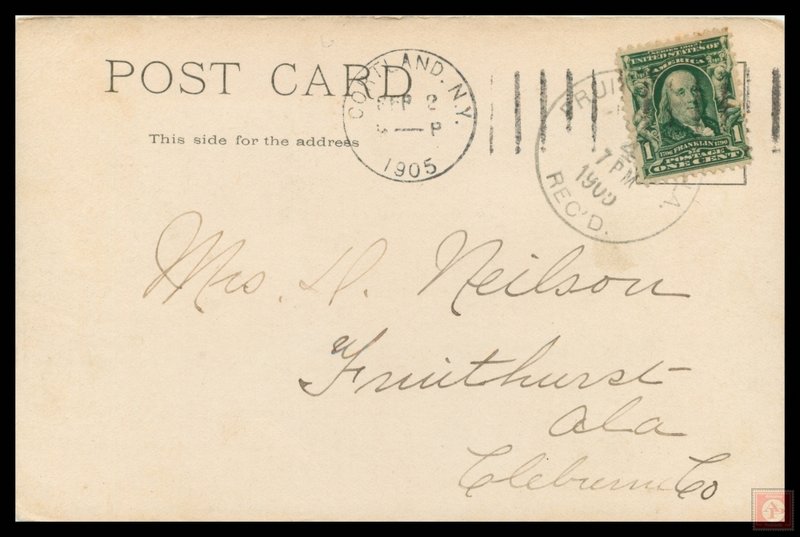 POST CARD
This side for the address
CORTLAND, N.Y.
SEP 2
P
1905
SERIES 1902
UNITED STATES OF
AMERICA
1706 FRANKLIN 1790
1 POSTAGE 1
ONE CENT
7 PM
1905
REC'D.
Mrs. D. Neilson
Fruithurst
Ala
Cleburne Co